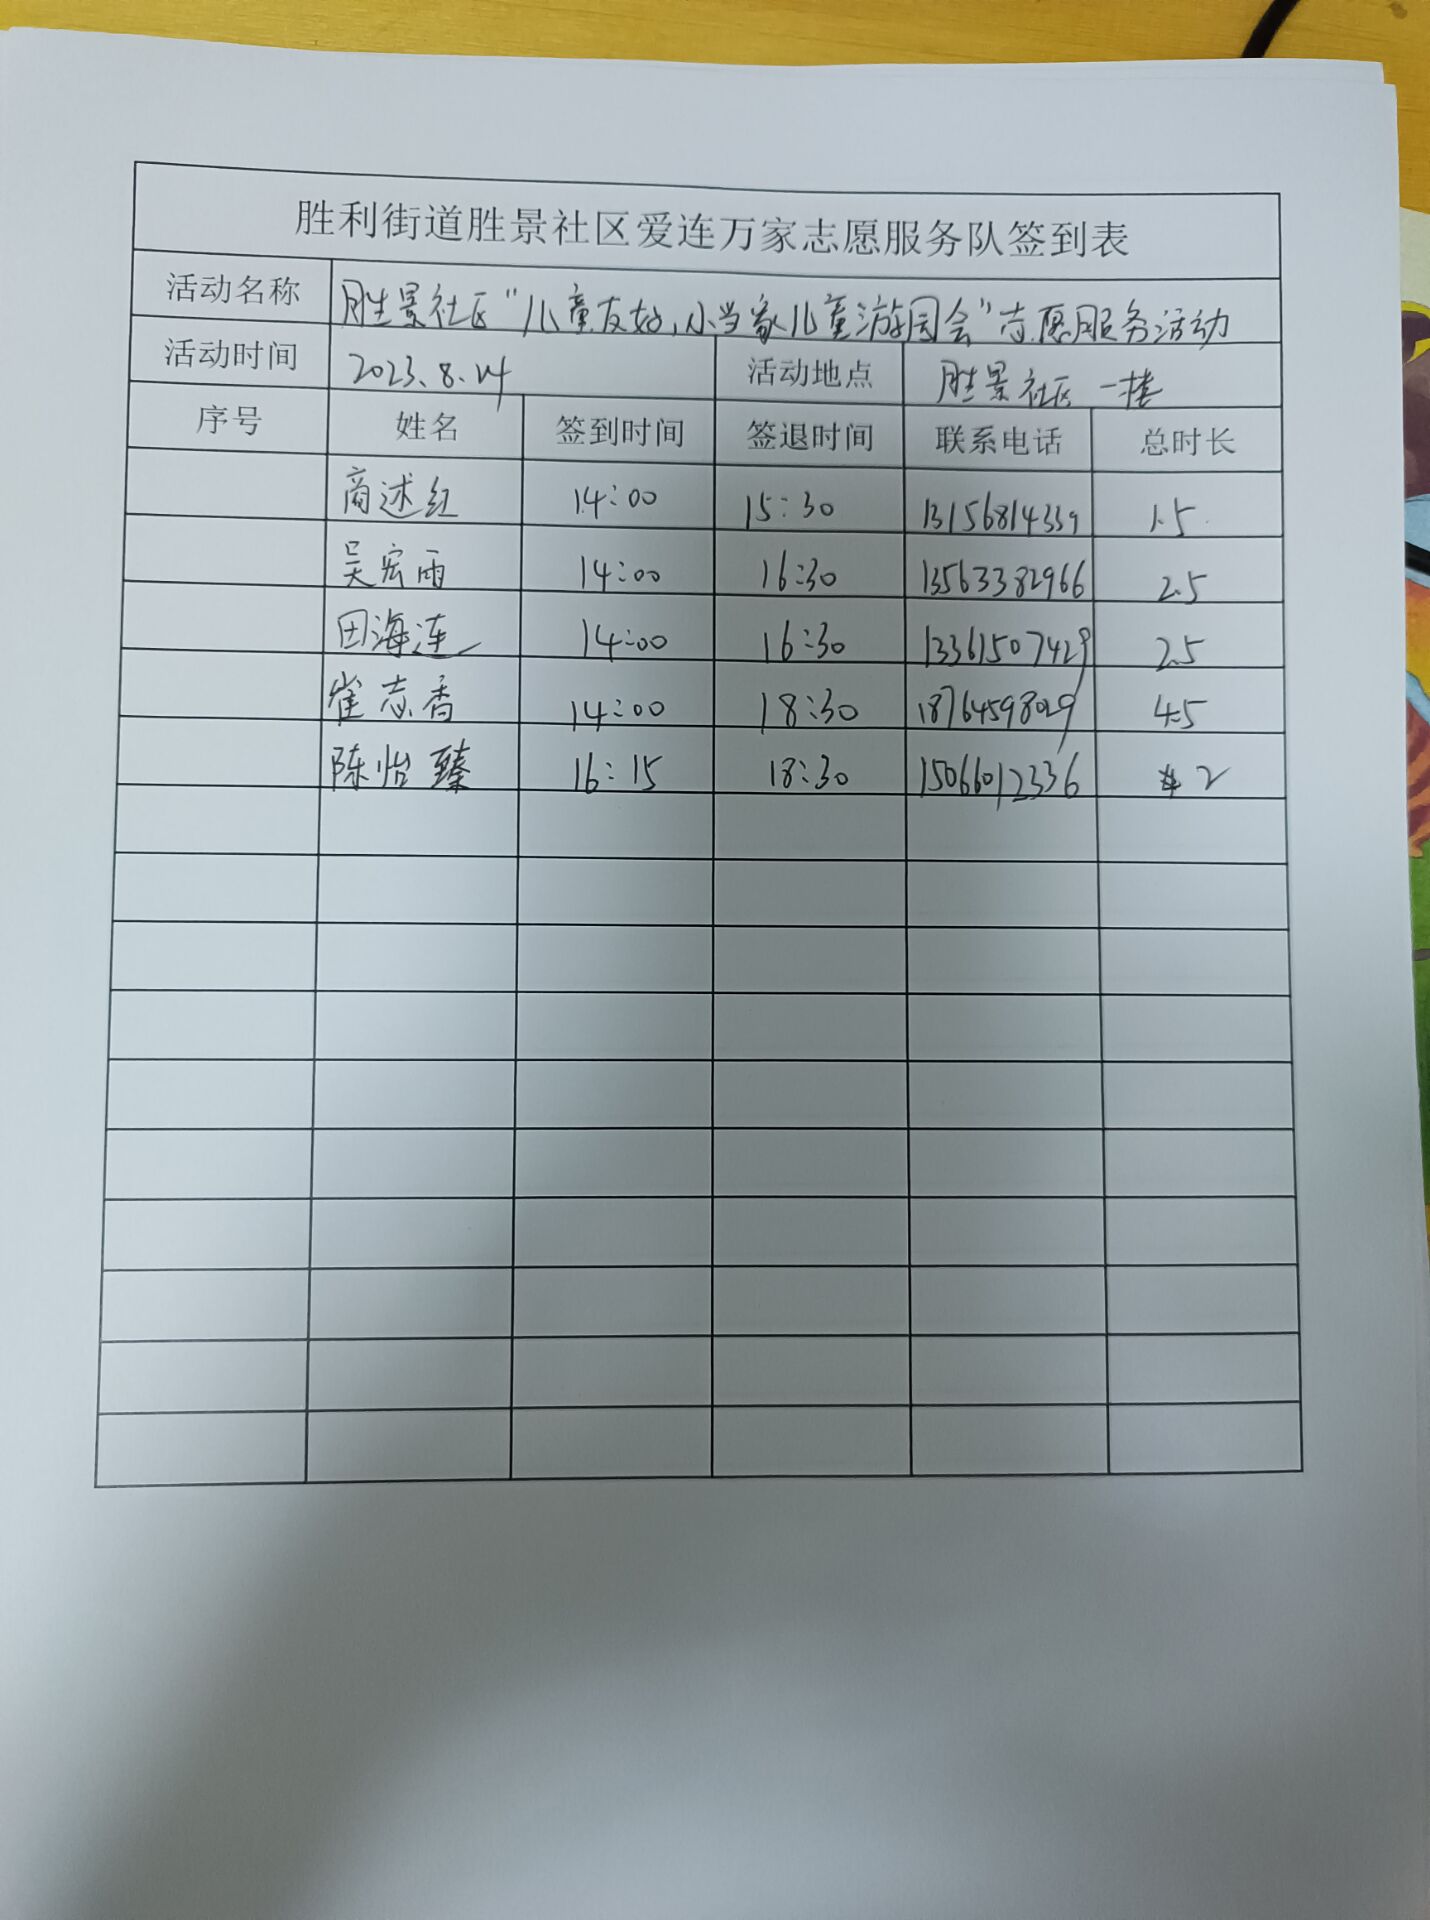 胜利街道胜景社区爱连万家志愿服务队签到表
活动名称 胜景社区“儿童友好,小当家儿童游园会”志愿服务活动
活动时间 2023.8.24 活动地点 胜景社区一楼
序号 姓名 签到时间 签退时间 联系电话 总时长
商述红 14:00 15:30 13156814339 1.5
吴宏雨 14:00 16:30 13563382966 2.5
田海连 14:00 16:30 13361507429 2.5
崔志香 14:00 18:30 18764598029 4.5
陈怡臻 16:15 18:30 15066012336 2